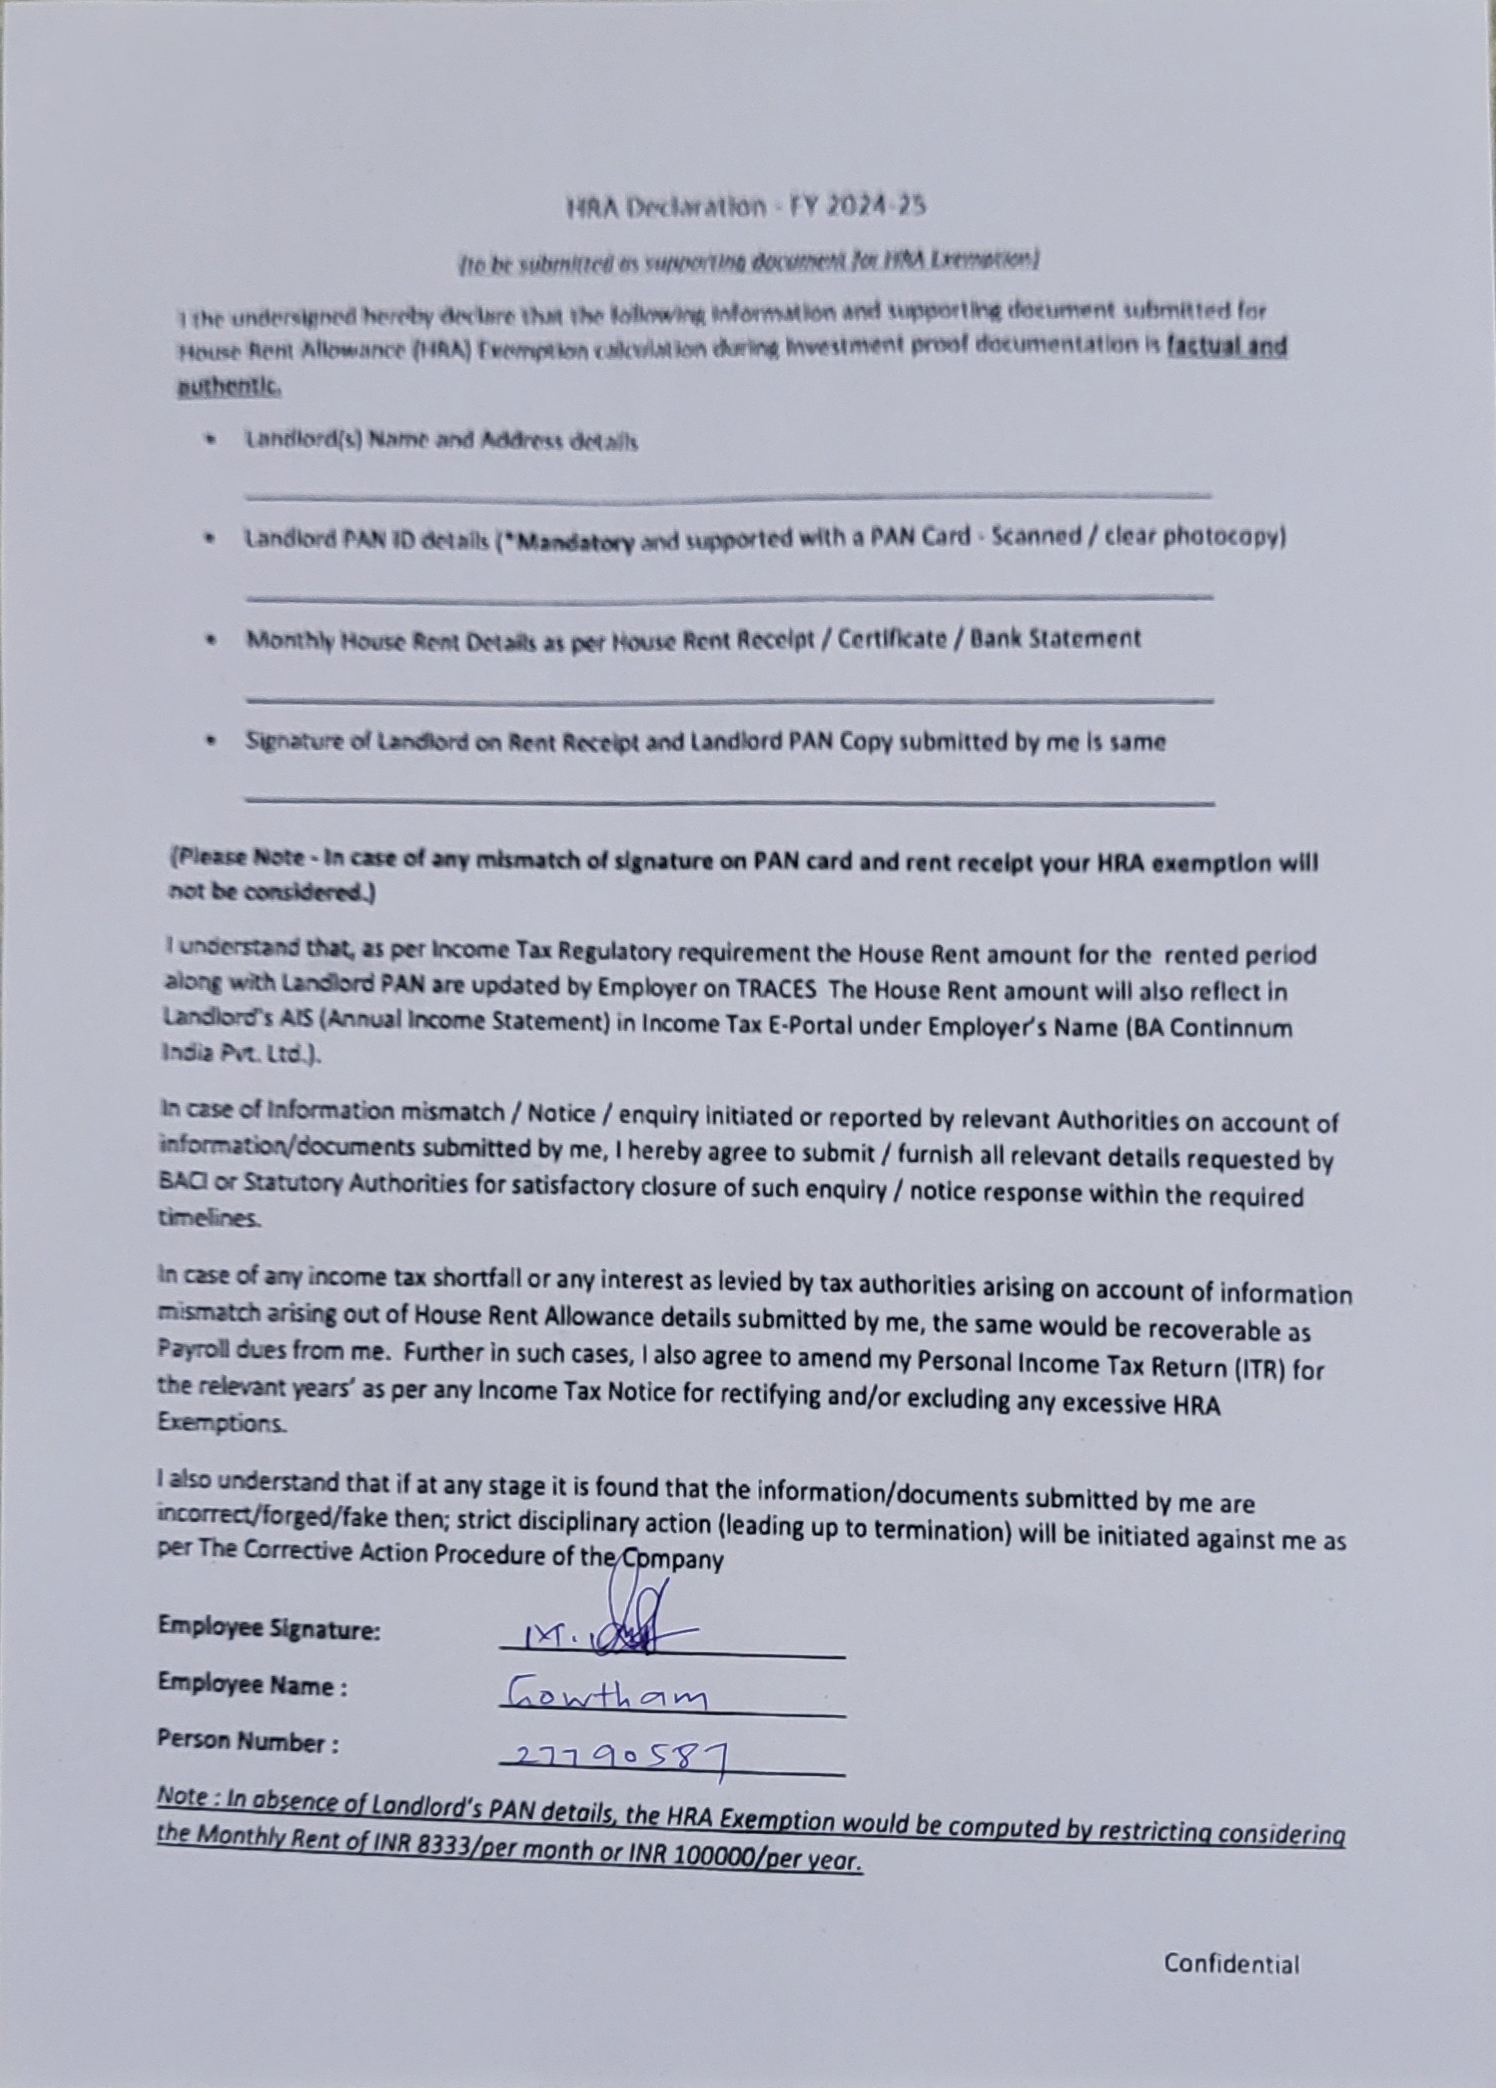 HRA Declaration - FY 2024-25
(to be submitted as supporting document for HRA Exemption)
I the undersigned hereby declare that the following information and supporting document submitted for
House Rent Allowance (HRA) Exemption calculation during Investment proof documentation is factual and
authentic.
• Landlord(s) Name and Address details
• Landlord PAN ID details (*Mandatory and supported with a PAN Card - Scanned / clear photocopy)
• Monthly House Rent Details as per House Rent Receipt / Certificate / Bank Statement
• Signature of Landlord on Rent Receipt and Landlord PAN Copy submitted by me is same
(Please Note - In case of any mismatch of signature on PAN card and rent receipt your HRA exemption will
not be considered.)
I understand that, as per Income Tax Regulatory requirement the House Rent amount for the rented period
along with Landlord PAN are updated by Employer on TRACES The House Rent amount will also reflect in
Landlord's AIS (Annual Income Statement) in Income Tax E-Portal under Employer's Name (BA Continnum
India Pvt. Ltd.).
In case of Information mismatch / Notice / enquiry initiated or reported by relevant Authorities on account of
information/documents submitted by me, I hereby agree to submit / furnish all relevant details requested by
BACI or Statutory Authorities for satisfactory closure of such enquiry / notice response within the required
timelines.
In case of any income tax shortfall or any interest as levied by tax authorities arising on account of information
mismatch arising out of House Rent Allowance details submitted by me, the same would be recoverable as
Payroll dues from me. Further in such cases, I also agree to amend my Personal Income Tax Return (ITR) for
the relevant years' as per any Income Tax Notice for rectifying and/or excluding any excessive HRA
Exemptions.
I also understand that if at any stage it is found that the information/documents submitted by me are
incorrect/forged/fake then; strict disciplinary action (leading up to termination) will be initiated against me as
per The Corrective Action Procedure of the Company
Employee Signature:
Employee Name : Gowtham
Person Number : 27790587
Note : In absence of Landlord's PAN details, the HRA Exemption would be computed by restricting considering
the Monthly Rent of INR 8333/per month or INR 100000/per year.
Confidential